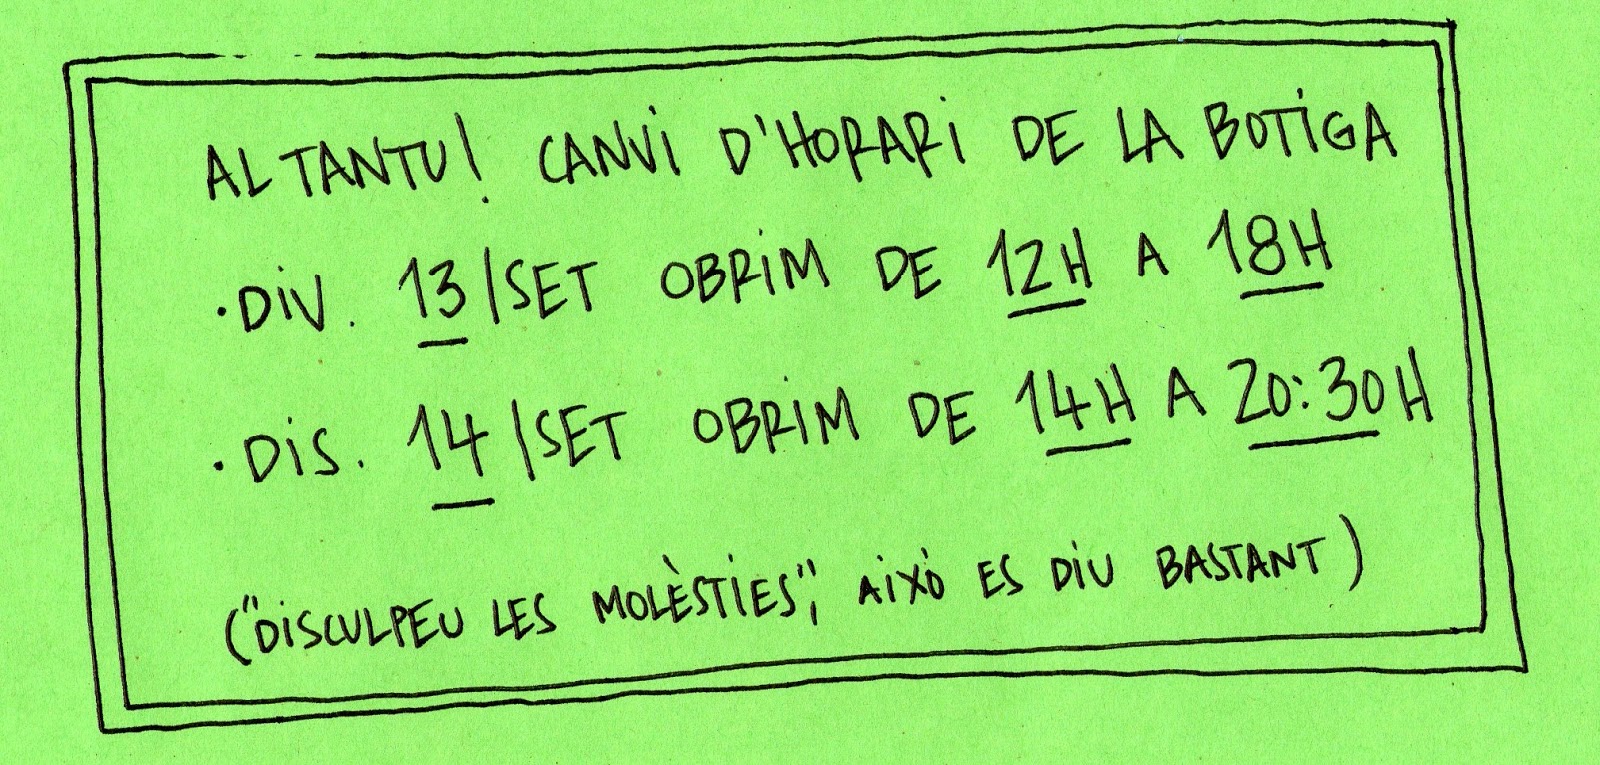 AL TANTU! CANVI D'HORARI DE LA BOTIGA
· DIV. 13/SET OBRIM DE 12H A 18H
· DIS. 14/SET OBRIM DE 14H A 20:30H
("DISCULPEU LES MOLÈSTIES", AIXÒ ES DIU BASTANT)